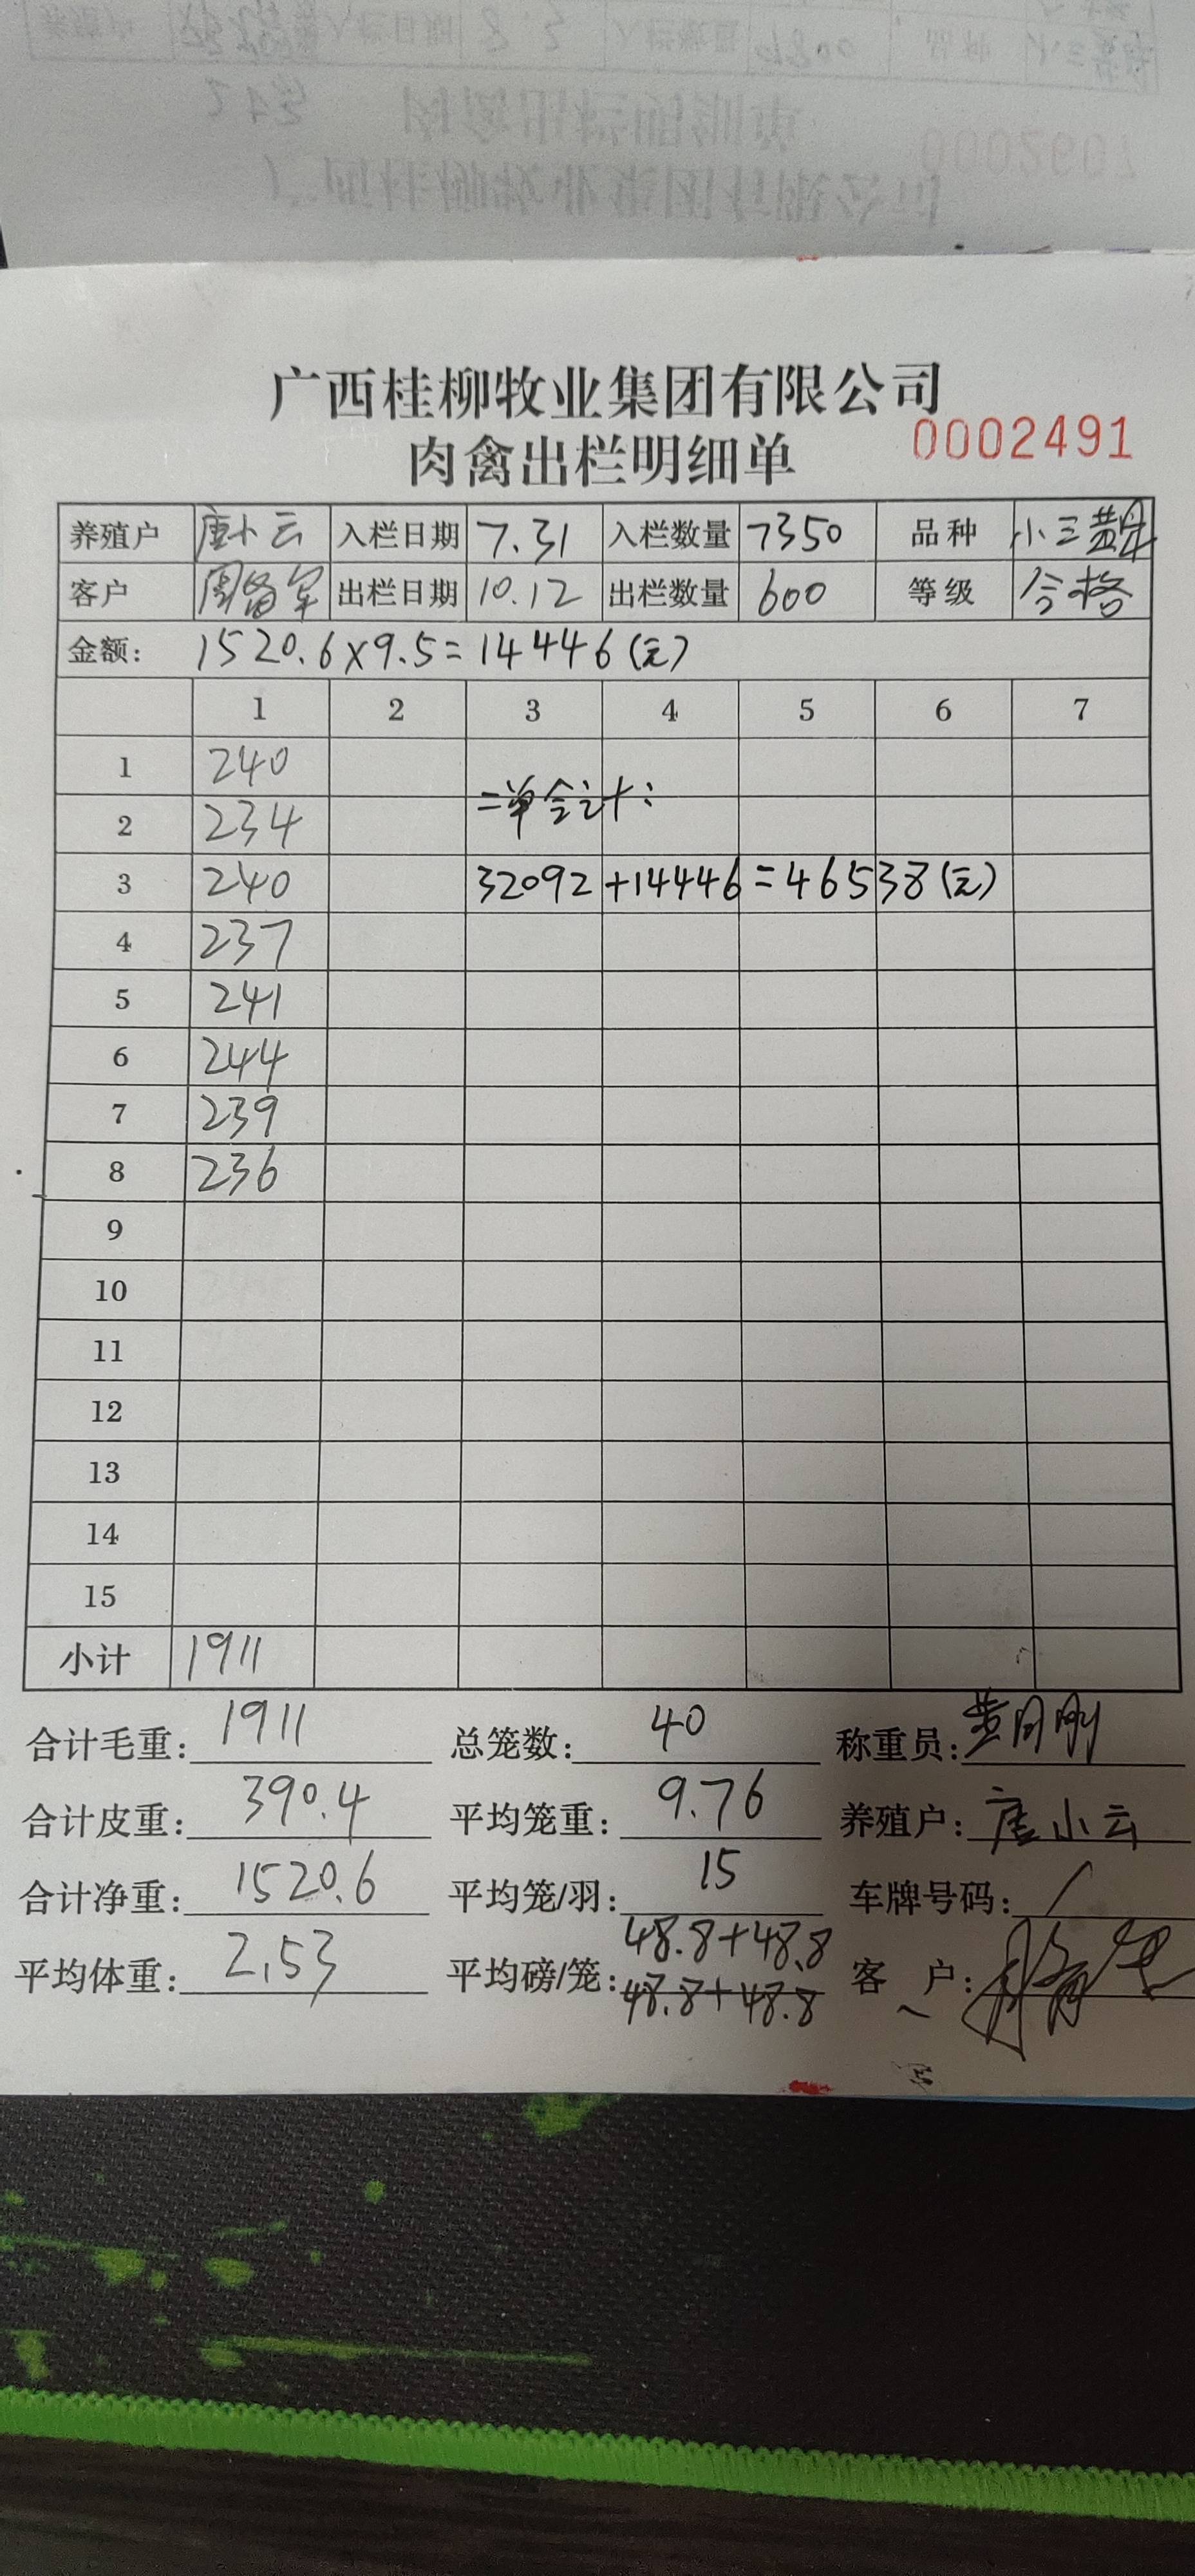 广西桂柳牧业集团有限公司
肉禽出栏明细单 0002491
养殖户 唐小云 入栏日期 7.31 入栏数量 7350 品种 小三黄
客户 出栏日期 10.12 出栏数量 600 等级 合格
金额： 1520.6×9.5=14446(元)
1 2 3 4 5 6 7
1 240
二单合计:
2 234
3 240 32092+14446=46538(元)
4 237
5 241
6 244
7 239
8 236
9
10
11
12
13
14
15
小计 1911
合计毛重: 1911 总笼数: 40 称重员:
合计皮重: 390.4 平均笼重: 9.76 养殖户: 唐小云
合计净重: 1520.6 平均笼/羽: 15 车牌号码: /
平均体重: 2.53 平均磅/笼: 48.8+48.8 客 户:
48.8+48.8